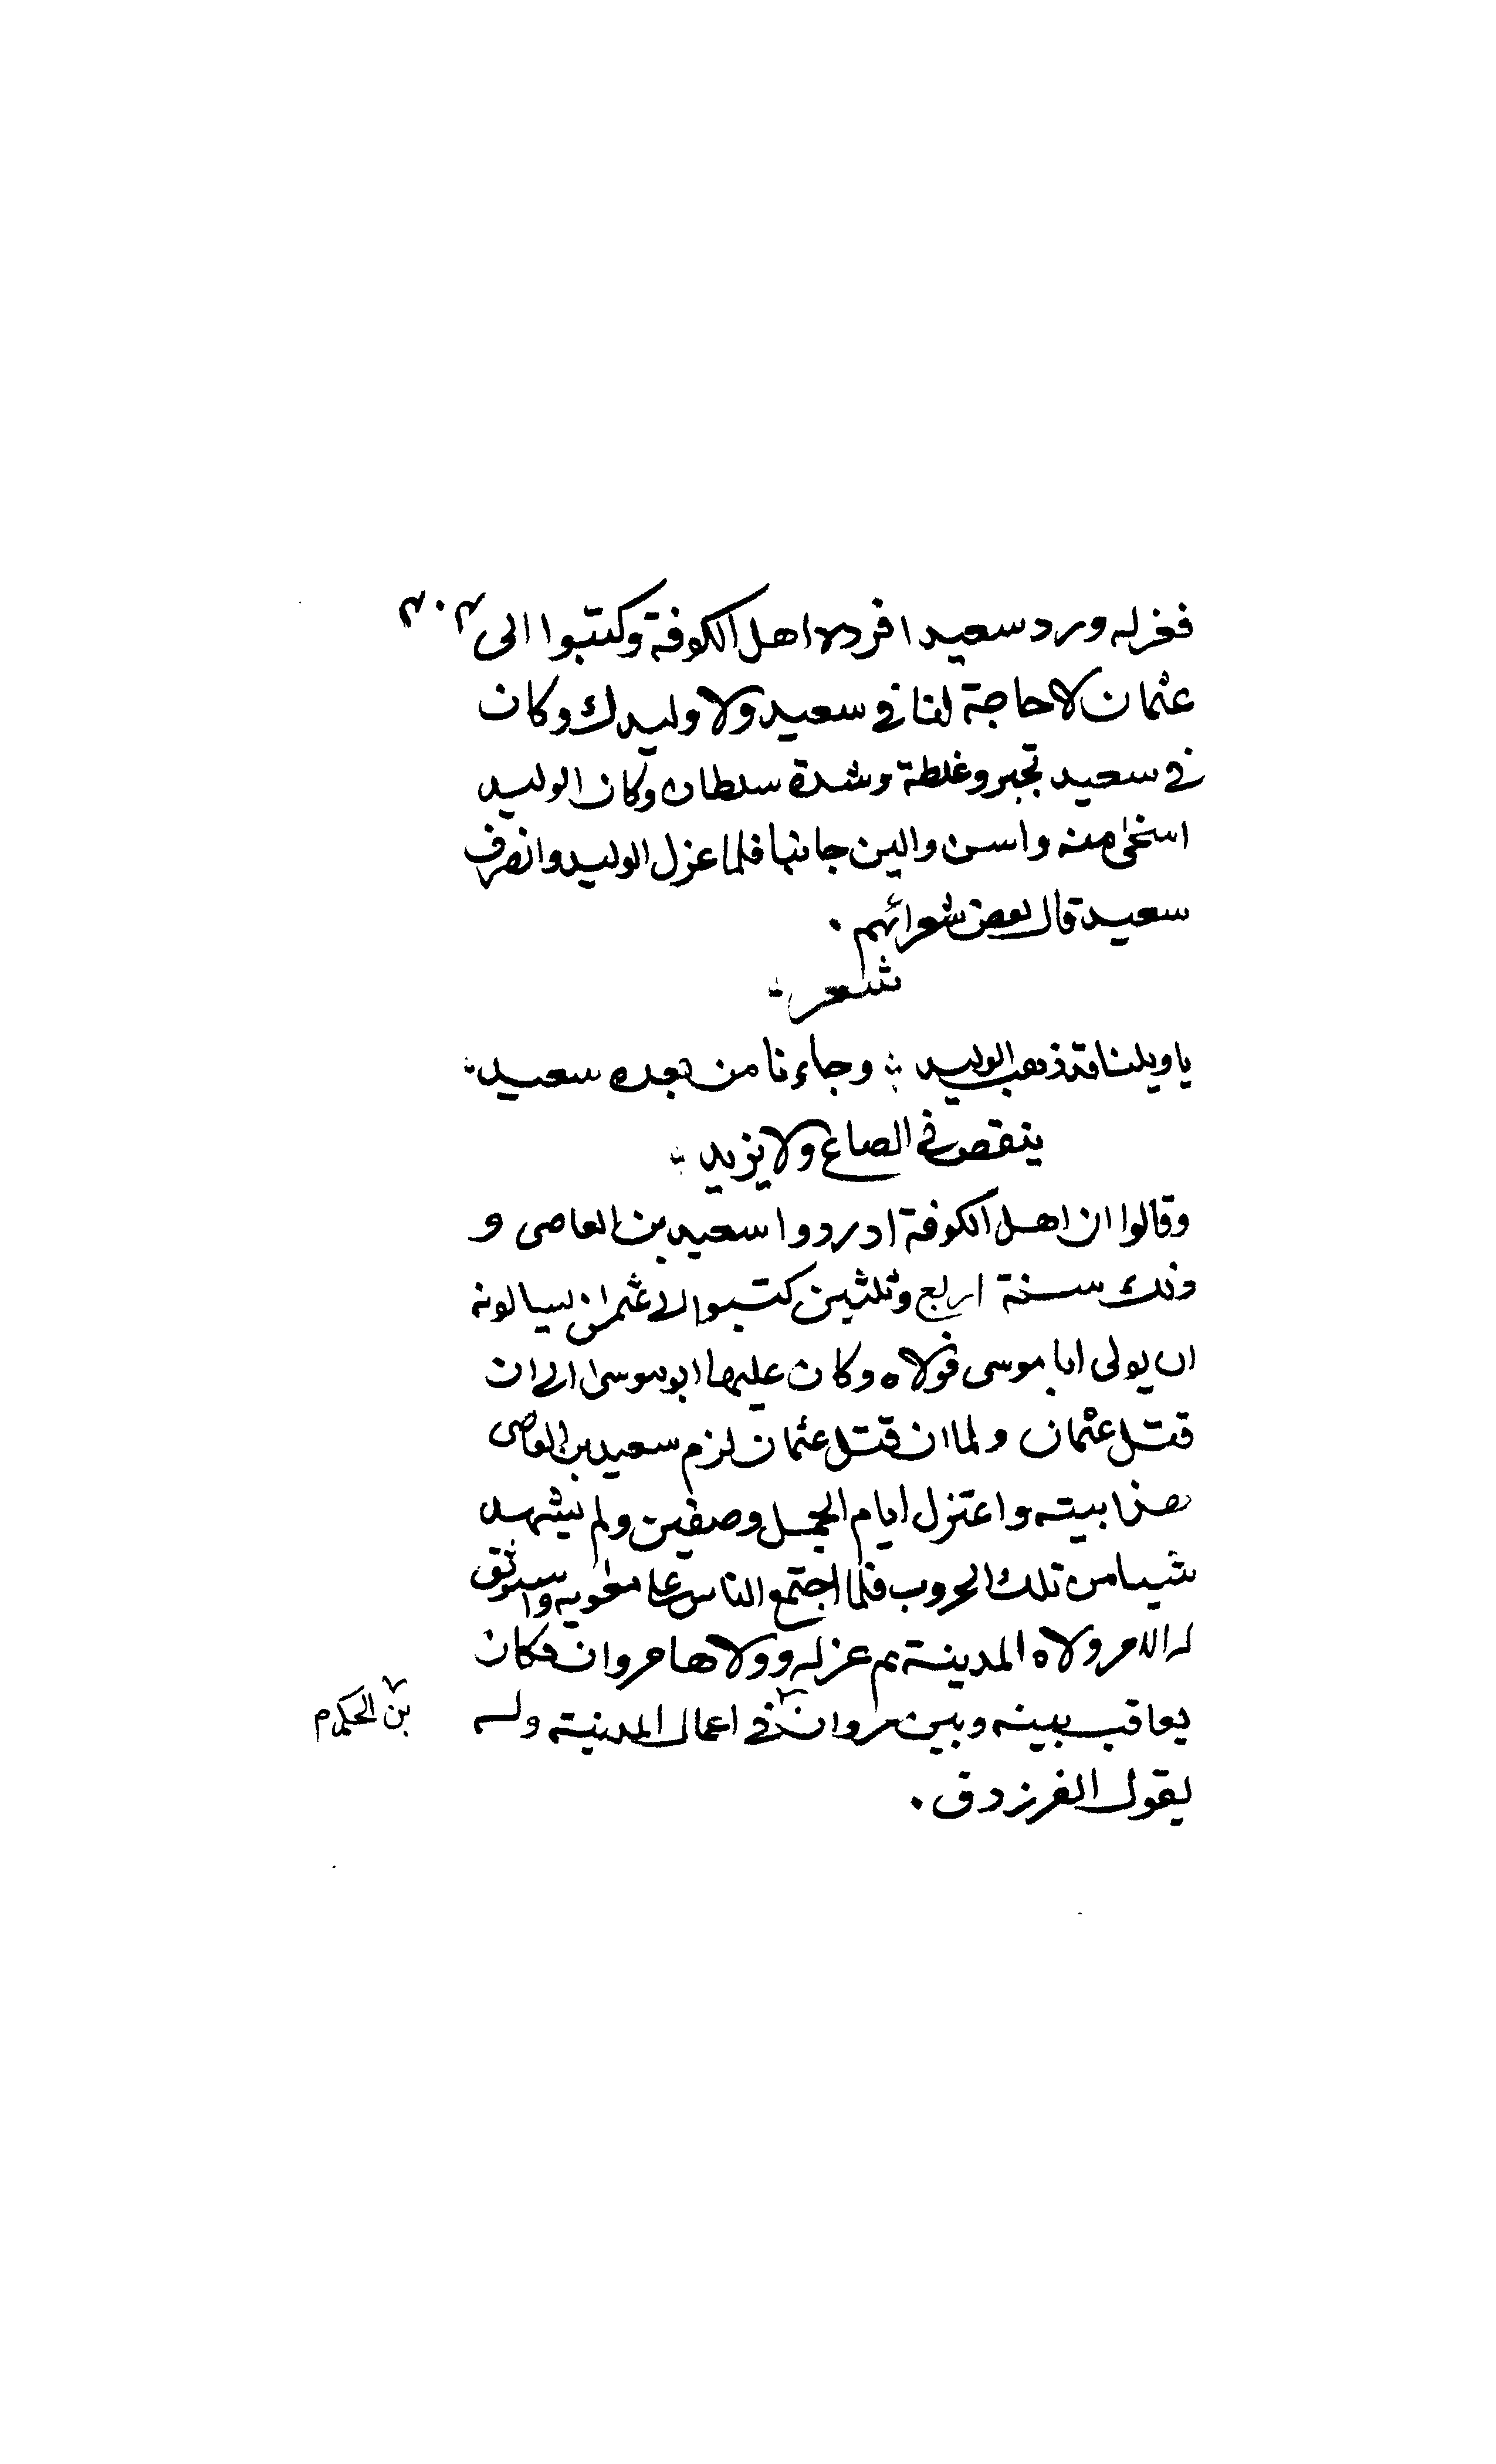 فعزله ورد سعيدا فرده اهل الكوفة وكتبوا الى ٣٠٣
عثمان لا حاجة لنا في سعيد ولا وليدك وكان
في سعيد تجبر وغلظة وشدة سلطان وكان الوليد
اسخى منه واسن والين جانبا فلما عزل الوليد وانصرف
سعيد قال بعض شعرائهم .
شعر
يا ويلنا قد ذهب الوليد وجاءنا من بعده سعيد
ينقص في الصاع ولا يزيد
وقالوا ان اهل الكوفة اد ردوا سعيد بن العاصى و
وذلك سنة اربع وثلثين كتبوا الى عثمان يسالونه
ان يولى ابا موسى فولاه وكان عليها ابو موسى الى ان
قتل عثمان ولما ان قتل عثمان لزم سعيد بن العاصى
هذا بيته واعتزل ايام الجمل وصفين ولم يشهد
شيا من تلك الحروب فلما اجتمع الناس على معوية واستوثق
له الامر ولاه المدينة ثم عزله وولاها مروان فكان
يعاقب بينه وبين مروان في اعمال المدينة وله
بن الحكم
يقول الفرزدق .